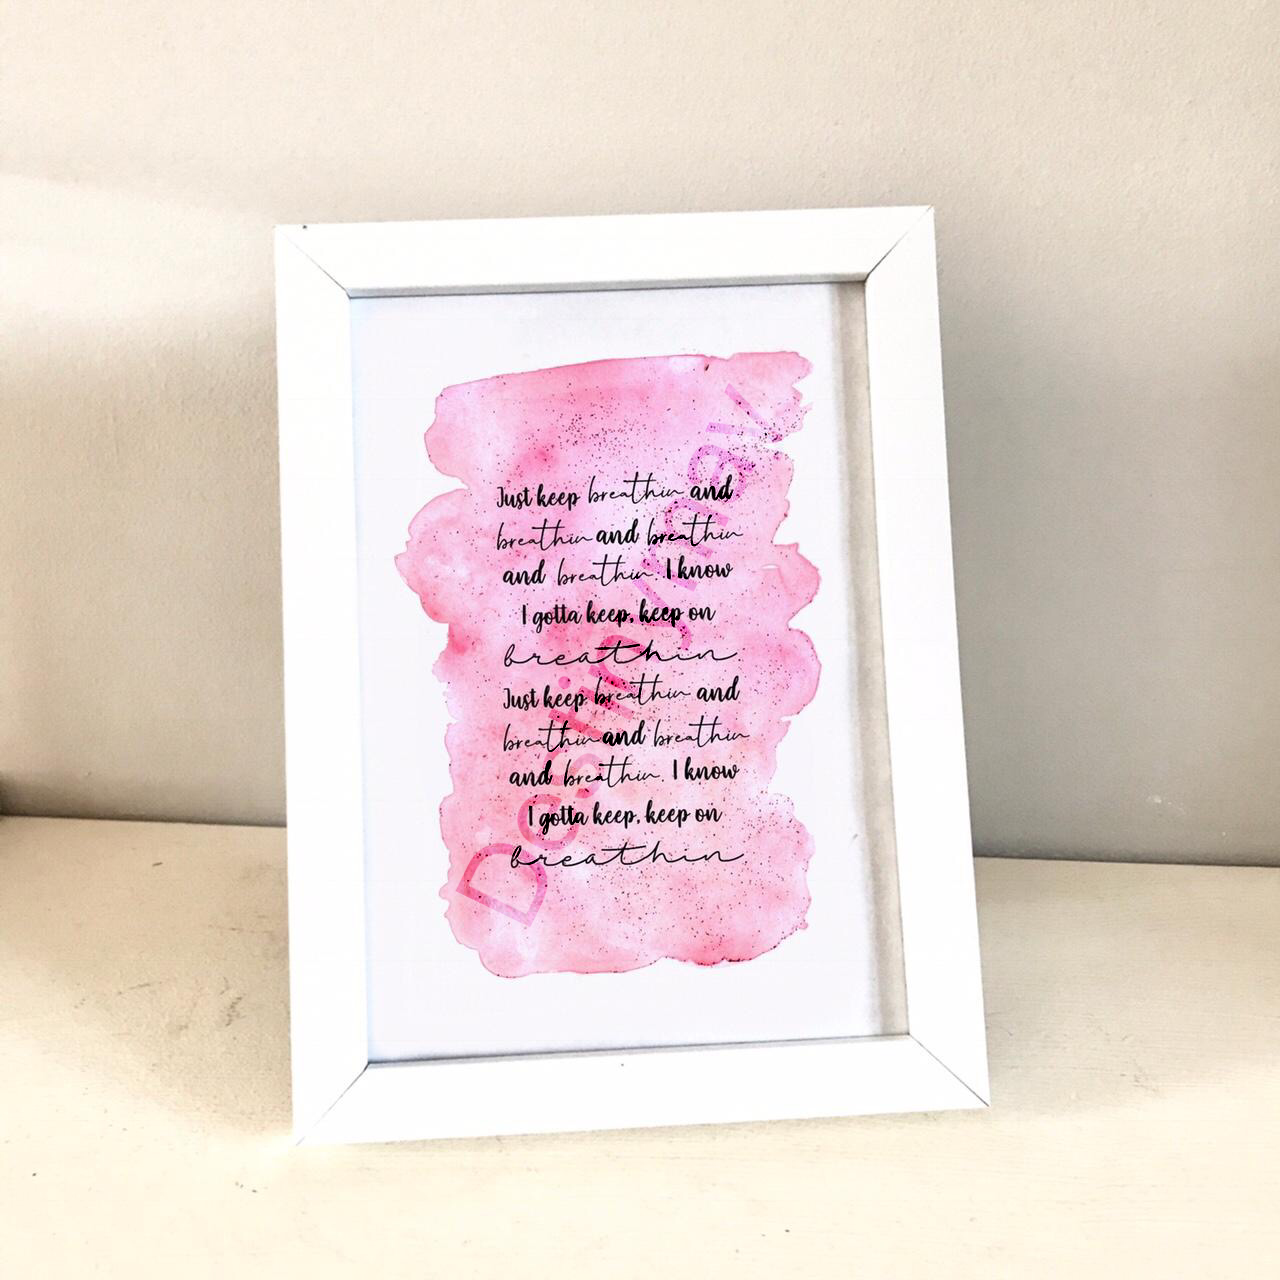 Just keep breathin and
breathin and breathin
and breathin. I know
I gotta keep, keep on
breathin
Just keep breathin and
breathin and breathin
and breathin. I know
I gotta keep, keep on
breathin